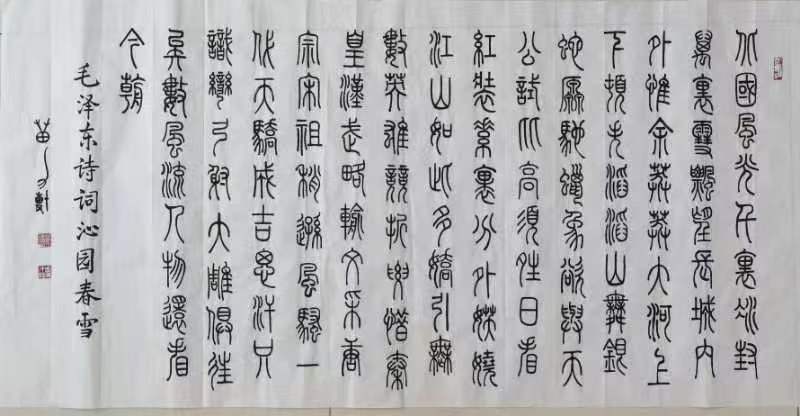 北國風光千裏冰封
萬裏雪飄望長城內
外惟余莽莽大河上
下頓失滔滔山舞銀
蛇原馳蠟象欲與天
公試比高須晴日看
紅裝素裹分外妖嬈
江山如此多嬌引無
數英雄競折腰惜秦
皇漢武略輸文采唐
宗宋祖稍遜風騷一
代天驕成吉思汗只
識彎弓射大雕俱往
矣數風流人物還看
今朝
毛泽东诗词沁园春雪
苗